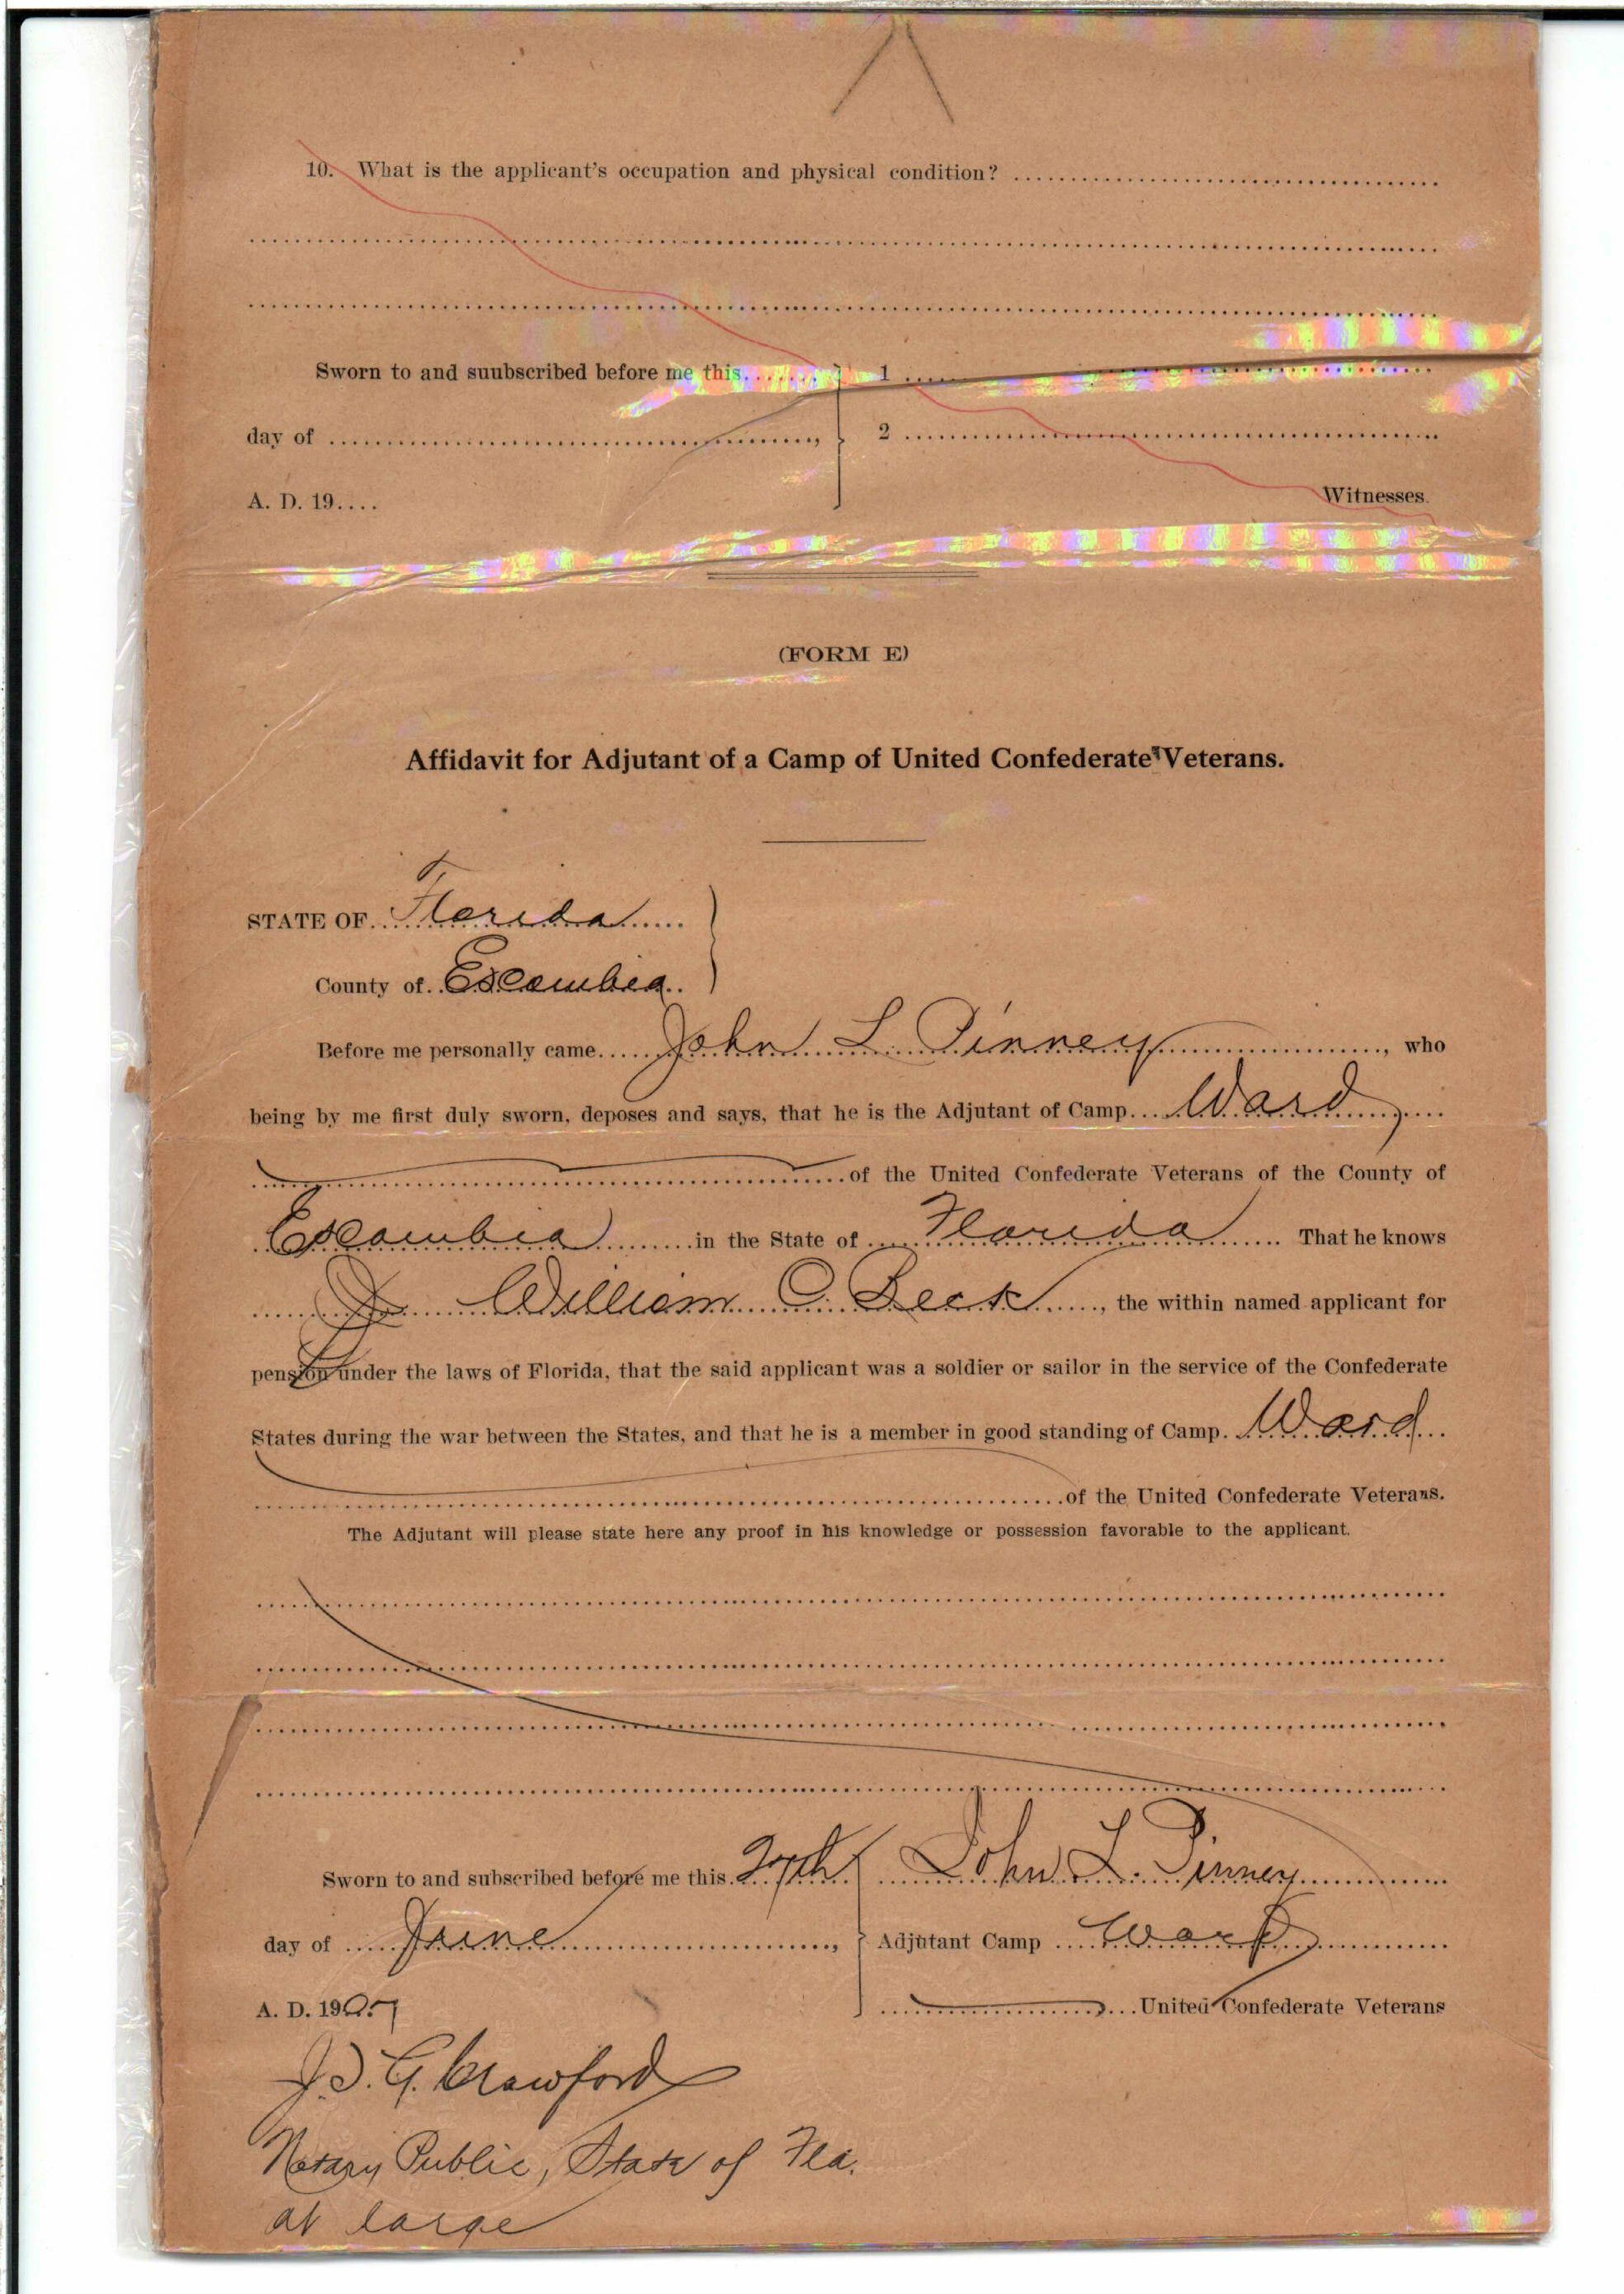 10. What is the applicant's occupation and physical condition?
Sworn to and suubscribed before me this 1
day of , 2
A. D. 19.... Witnesses.
(FORM E)
Affidavit for Adjutant of a Camp of United Confederate Veterans.
STATE OF Florida
County of Escambia
Before me personally came John L. Pinney, who
being by me first duly sworn, deposes and says, that he is the Adjutant of Camp Ward
of the United Confederate Veterans of the County of
Escambia in the State of Florida That he knows
William C. Beck, the within named applicant for
pension under the laws of Florida, that the said applicant was a soldier or sailor in the service of the Confederate
States during the war between the States, and that he is a member in good standing of Camp Ward
of the United Confederate Veterans.
The Adjutant will please state here any proof in his knowledge or possession favorable to the applicant.
Sworn to and subscribed before me this 27th John L. Pinney
day of June, Adjutant Camp Ward
A. D. 1907 United Confederate Veterans
J. G. Crawford
Notary Public, State of Fla.
at large